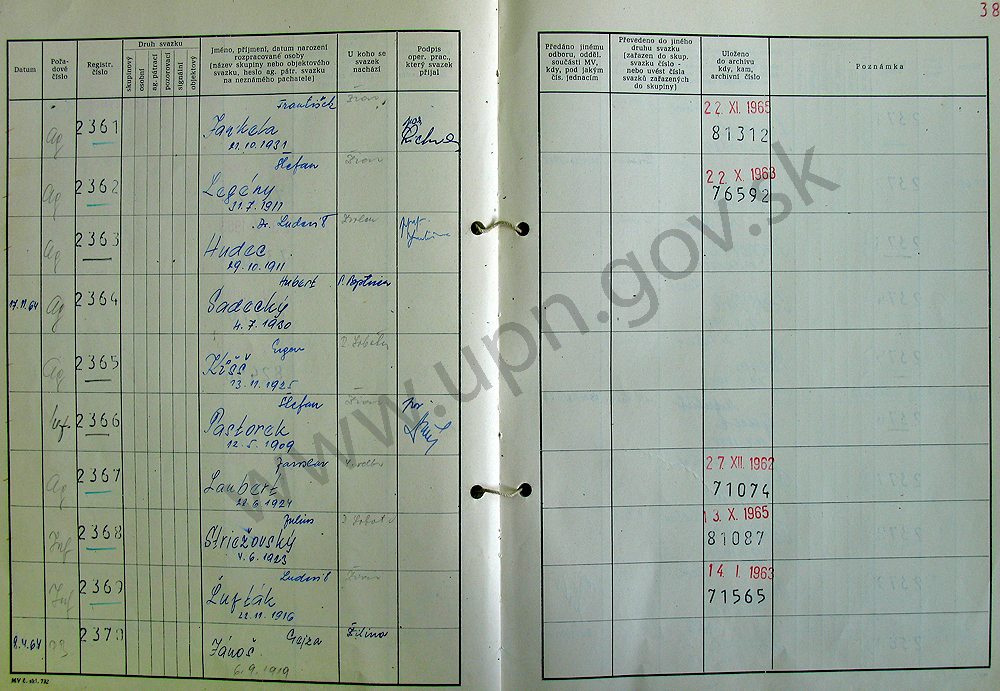 38
Datum
Pořadové číslo
Registr. číslo
Druh svazku
skupinový
osobní
ag. pátrací
pozorovací
signální
objektový
Jméno, příjmení, datum narození
rozpracované osoby
(název skupiny nebo objektového
svazku, heslo ag. pátr. svazku
na neznámého pachatele)
U koho se
svazek
nachází
Podpis
oper. prac.,
který svazek
přijal
Předáno jinému
odboru, odděl.
součásti MV,
kdy, pod jakým
čís. jednacím
Převedeno do jiného
druhu svazku
(zařazen do skup.
svazku číslo -
nebo uvést čísla
svazků zařazených
do skupiny)
Uloženo
do archivu
kdy, kam,
archivní číslo
Poznámka
František
Ag 2361 Jankela
21.10.1931
22. XI. 1965
81312
Štefan
Ag 2362 Legény
31.7.1911
22. X. 1963
76592
Dr. Ludovít Zvolen
Ag 2363 Hudec
29.10.1911
Hubert
17.11.64 Ag 2364 Sadecký
4.7.1930
Ag 2365 Kišš
13.11.1925
Štefan
2366 Pastorek
12.5.1909
Jaroslav
Ag 2367 Laubert
22.6.1924
27. XII. 1962
71074
Július
Inf 2368 Striežovský
4.6.1923
13. X. 1965
81087
Ludovít
Inf 2369 Žufták
22.11.1916
14. I. 1963
71565
Gejza Žilina
8.4.64 2370 Jánoš
6.9.1919
MV č. skl. 792
www.upn.gov.sk